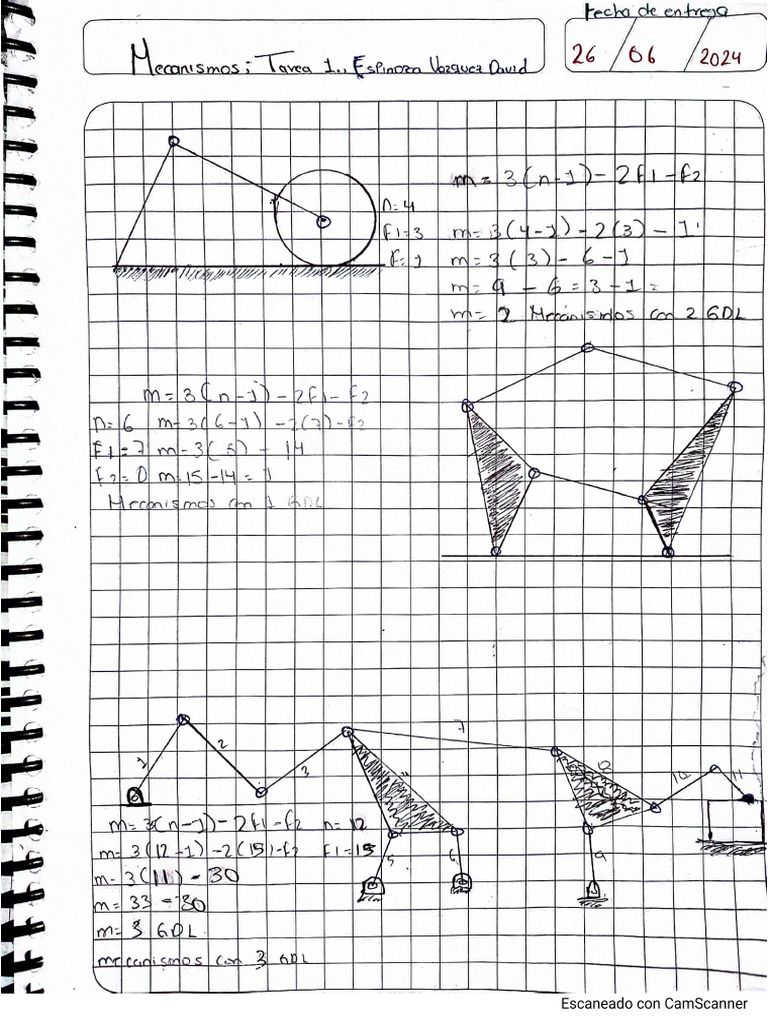 Fecha de entrega
Mecanismos; Tarea 1., Espinoza Vazquez David
26 / 06 / 2024
m = 3(n-1) - 2f1 - f2
n=4
f1=3 m= 3(4-1) - 2(3) - 1
f=1 m= 3(3) - 6 - 1
m= 9 - 6 = 3 - 1 =
m= 2 Mecanismos con 2 GDL
m = 3(n-1) - 2f1 - f2
n=6 m=3(6-1) - 2(7) - f2
f1=7 m=3(5) - 14
f2=0 m=15-14=1
Mecanismos con 1 GDL
1
2
3
7
10
11
5
6
9
m= 3(n-1) - 2f1 - f2 n=12
m= 3(12-1) - 2(15) - f2 f1=15
m= 3(11) - 30
m= 33 - 30
m= 3 GDL
mecanismos con 3 GDL
Escaneado con CamScanner